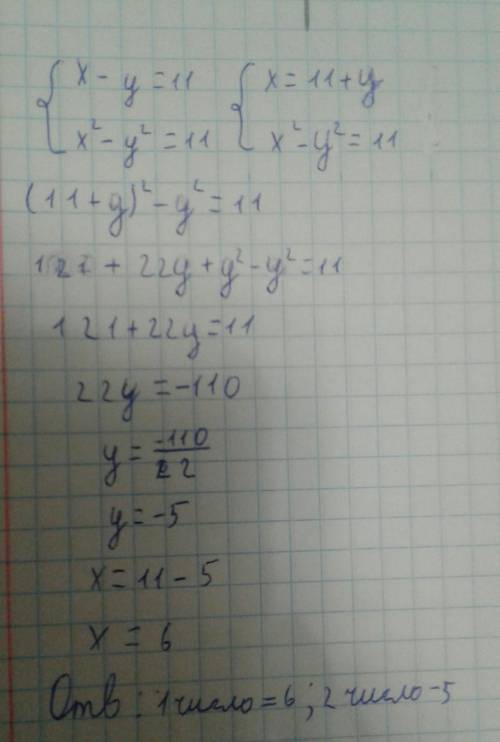 { x - y = 11 { x = 11 + y
x² - y² = 11 x² - y² = 11
(11 + y)² - y² = 11
121 + 22y + y² - y² = 11
121 + 22y = 11
22y = -110
y = -110/22
y = -5
x = 11 - 5
x = 6
Отв: 1 число = 6; 2 число -5